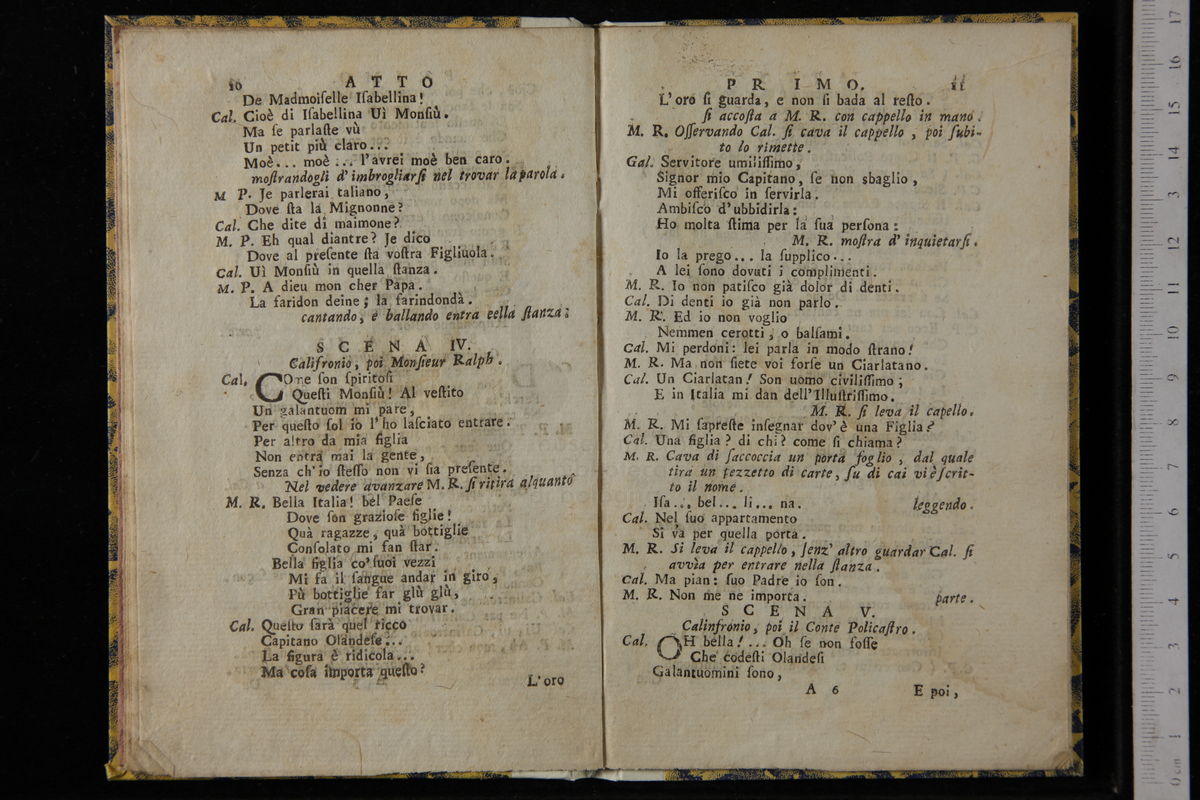 10 ATTO
De Madmoiſelle Iſabellina!
Cal. Cioè di Iſabellina Uì Monſiù.
Ma ſe parlaſte vù
Un petit più claro...
Moè... moè ... l'avrei moè ben caro.
moſtrandogli d'imbrogliarſi nel trovar la parola.
M P. Je parlerai taliano,
Dove ſta la Mignonne?
Cal. Che dite di maimone?
M. P. Eh qual diantre? Je dico
Dove al preſente ſta voſtra Figliuola.
Cal. Uì Monſiù in quella ſtanza.
M. P. A dieu mon cher Papa.
La faridon deine; la farindondà.
cantando, e ballando entra eella ſtanza;
SCENA IV.
Califronio, poi Monſieur Ralph.
Cal. COme ſon ſpiritoſi
Queſti Monſiù! Al veſtito
Un galantuom mi pare,
Per queſto ſol io l'ho laſciato entrare.
Per altro da mia figlia
Non entra mai la gente,
Senza ch'io ſteſſo non vi ſia preſente.
Nel vedere avanzare M. R. ſi ritira alquanto
M. R. Bella Italia! bel Paeſe
Dove ſon grazioſe figlie!
Quà ragazze, quà bottiglie
Conſolato mi fan ſtar.
Bella figlia co' ſuoi vezzi
Mi fa il ſangue andar in giro,
Pù bottiglie far glù glù,
Gran piacere mi trovar.
Cal. Queſto ſarà quel ricco
Capitano Olandeſe...
La figura è ridicola...
Ma coſa importa queſto?
L'oro
PRIMO. 11
L'oro ſi guarda, e non ſi bada al reſto.
ſi accoſta a M. R. con cappello in mano.
M. R. Oſſervando Cal. ſi cava il cappello, poi ſubi-
to lo rimette.
Gal. Servitore umiliſſimo,
Signor mio Capitano, ſe non sbaglio,
Mi offeriſco in ſervirla.
Ambiſco d'ubbidirla:
Ho molta ſtima per la ſua perſona:
M. R. moſtra d'inquietarſi.
Io la prego... la ſupplico...
A lei ſono dovuti i complimenti.
M. R. Io non patiſco già dolor di denti.
Cal. Di denti io già non parlo.
M. R. Ed io non voglio
Nemmen cerotti, o balſami.
Cal. Mi perdoni: lei parla in modo ſtrano!
M. R. Ma non ſiete voi forſe un Ciarlatano.
Cal. Un Ciarlatan! Son uomo civiliſſimo;
E in Italia mi dan dell'Illuſtriſſimo.
M. R. ſi leva il capello.
M. R. Mi ſapreſte inſegnar dov'è una Figlia?
Cal. Una figlia? di chi? come ſi chiama?
M. R. Cava di ſaccoccia un porta foglio, dal quale
tira un pezzetto di carte, ſu di cai vi è ſcrit-
to il nome.
Iſa... bel... li... na. leggendo.
Cal. Nel ſuo appartamento
Si và per quella porta.
M. R. Si leva il cappello, ſenz' altro guardar Cal. ſi
avvìa per entrare nella ſtanza.
Cal. Ma pian: ſuo Padre io ſon.
M. R. Non me ne importa. parte.
SCENA V.
Calinfronio, poi il Conte Policaſtro.
Cal. OH bella!... Oh ſe non foſſe
Che codeſti Olandeſi
Galantuomini ſono,
A 6 E poi,